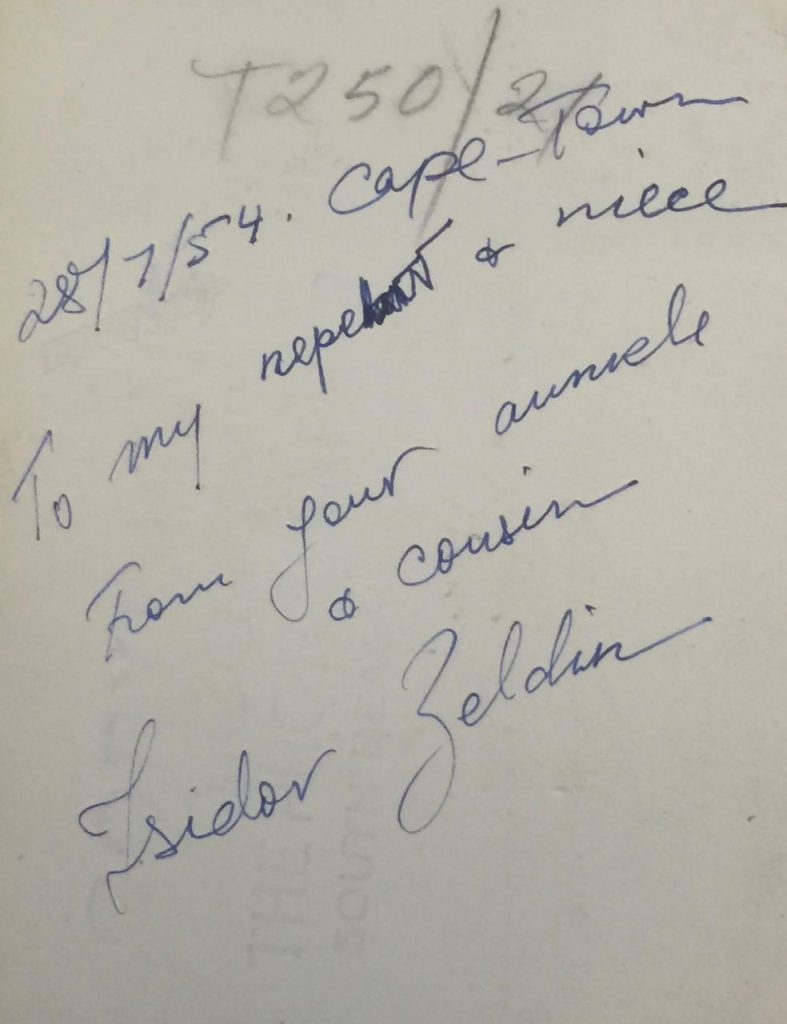 T250/2
28/1/54. Cape-Town
To my & niece
From your aunkle
& cousin
Isidor Zeldin